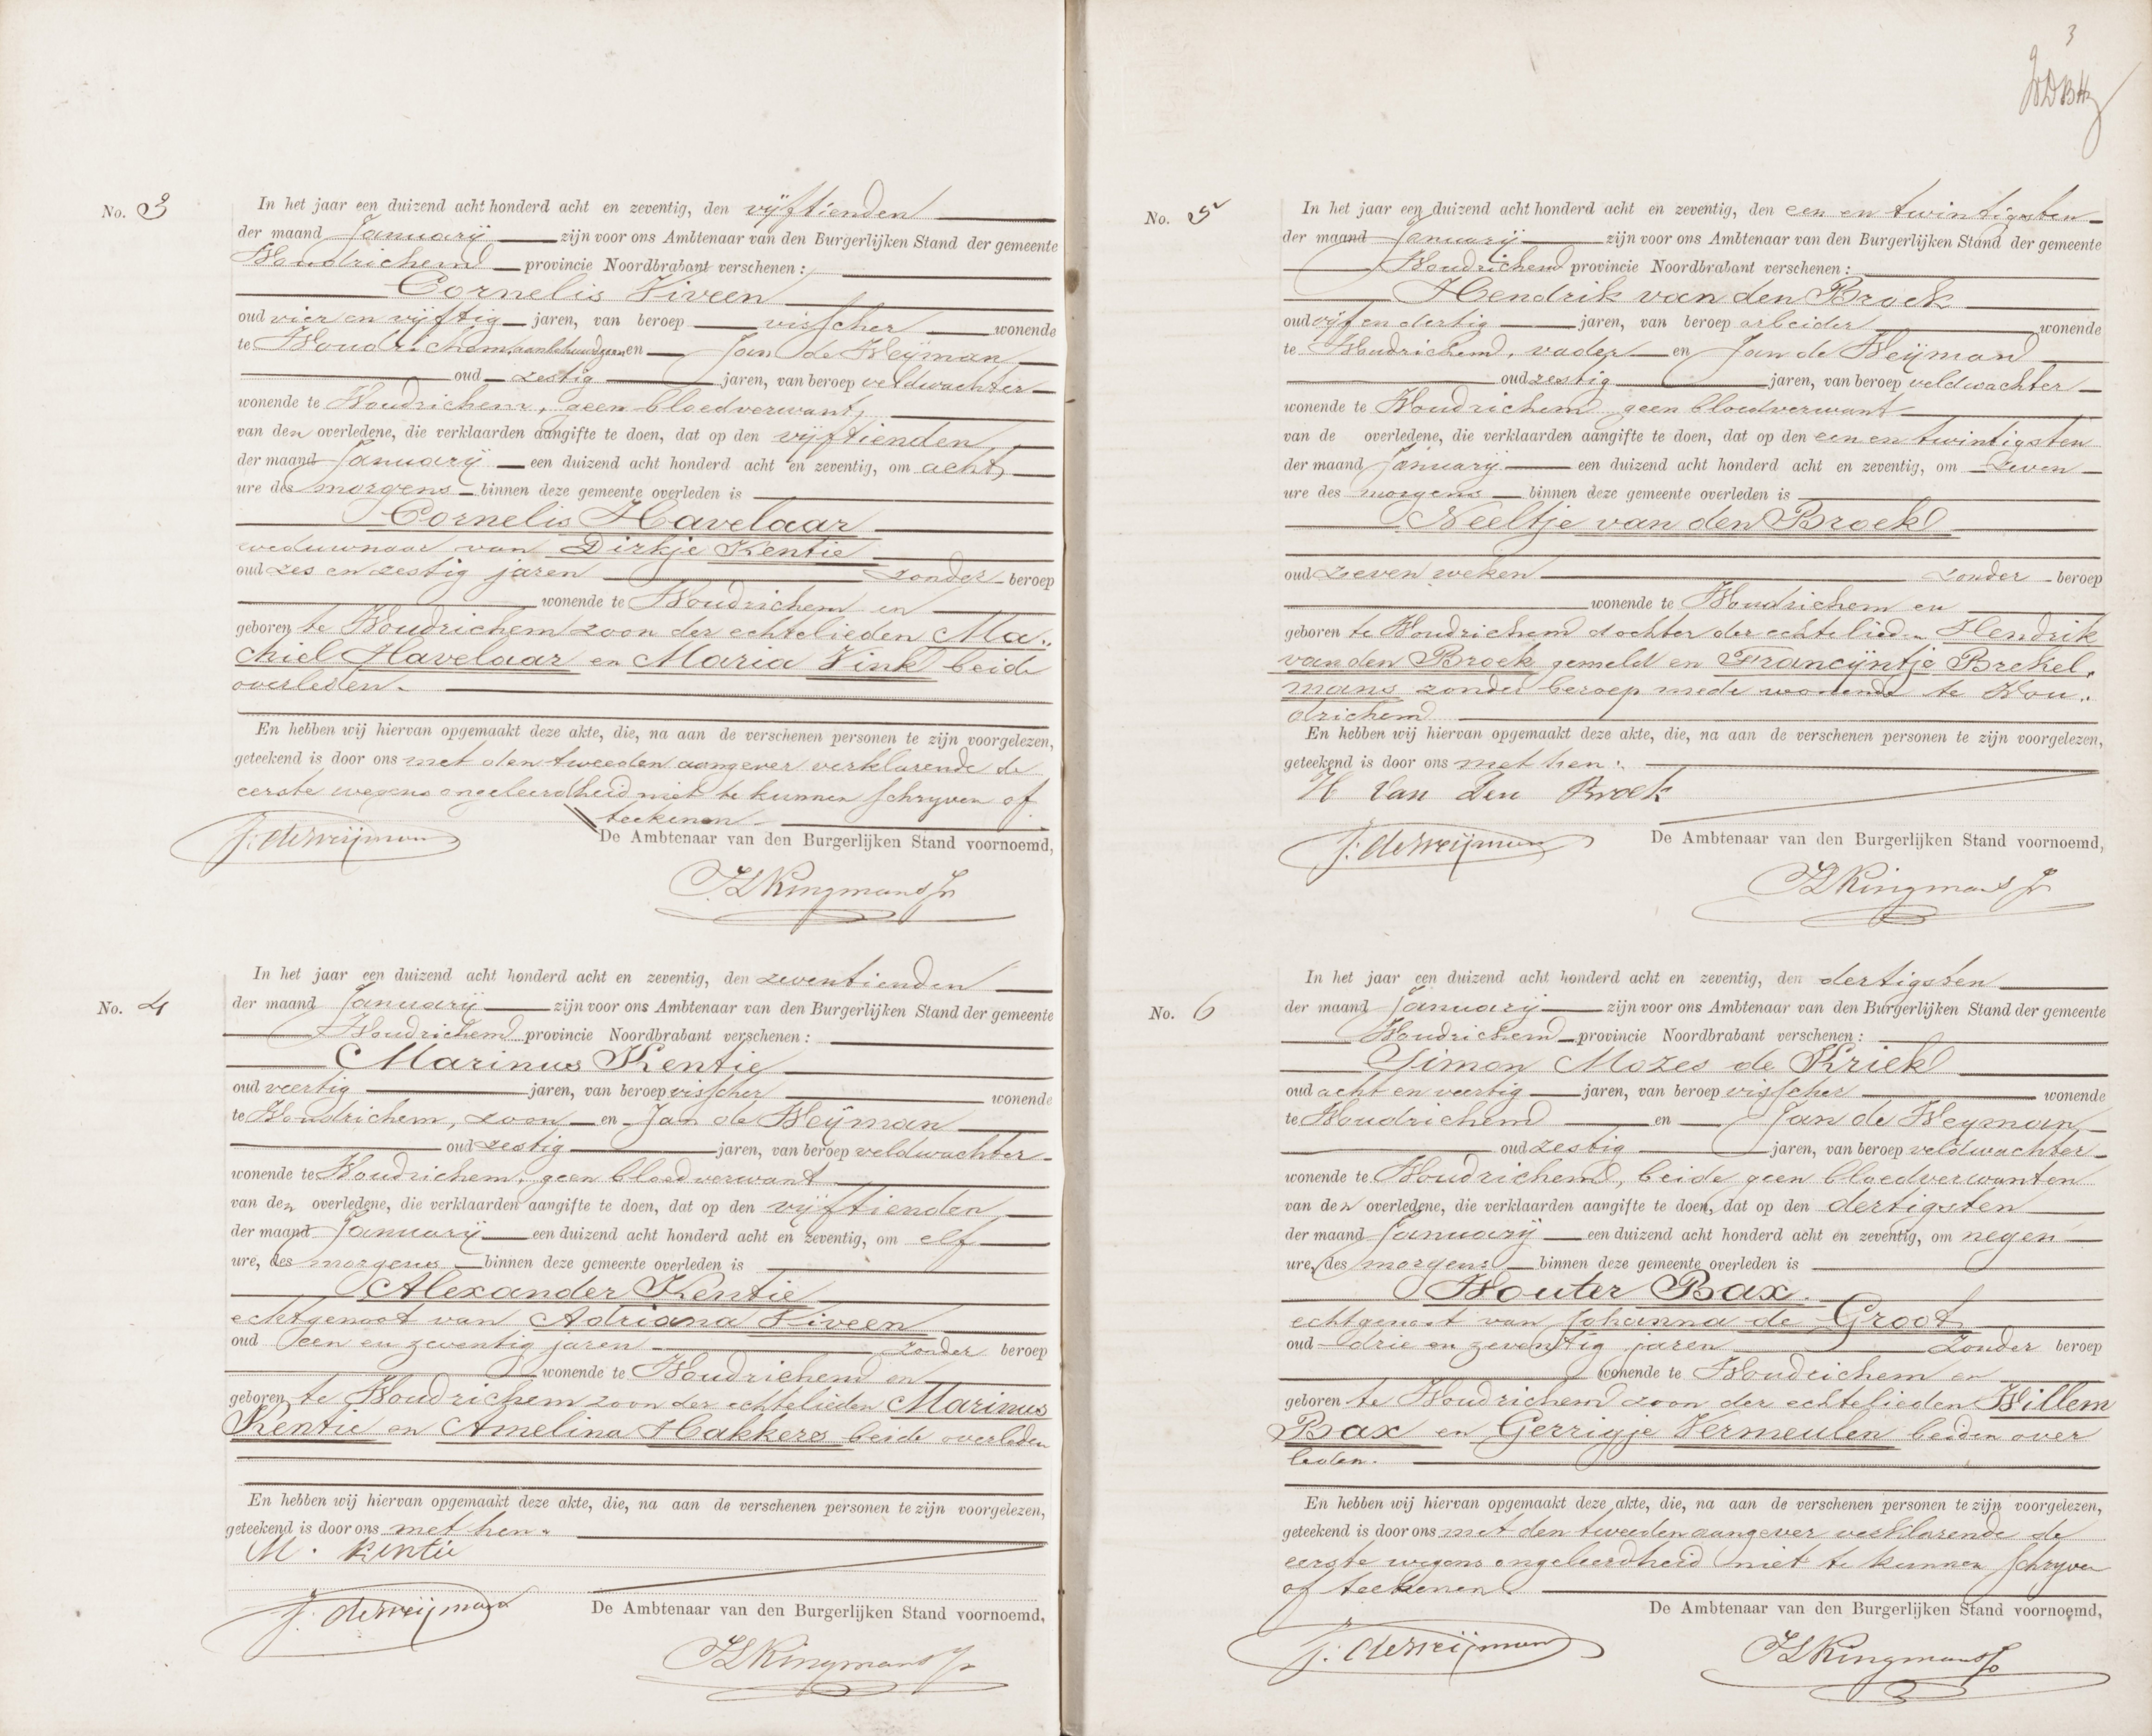 No. 3
In het jaar een duizend acht honderd acht en zeventig, den vijftienden
der maand Januarij zijn voor ons Ambtenaar van den Burgerlijken Stand der gemeente
Woudrichem provincie Noordbrabant verschenen:
Cornelis Viveen
oud vier en vijftig jaren, van beroep visscher wonende
te Woudrichem, aanbehuwdzoon en Jan de Weijman
oud zestig jaren, van beroep veldwachter
wonende te Woudrichem, geen bloedverwant,
van den overledene, die verklaarden aangifte te doen, dat op den vijftienden
der maand Januarij een duizend acht honderd acht en zeventig, om acht
ure des morgens binnen deze gemeente overleden is
Cornelis Havelaar
weduwnaar van Dirkje Kentie
oud zes en zestig jaren zonder beroep
wonende te Woudrichem en
geboren te Woudrichem zoon der echtelieden Ma-
chiel Havelaar en Maria Vink beide
overleden.
En hebben wij hiervan opgemaakt deze akte, die, na aan de verschenen personen te zijn voorgelezen,
geteekend is door ons met den tweeden aangever verklarende de
eerste wegens ongeleerdheid niet te kunnen schryven of
teekenen
De Ambtenaar van den Burgerlijken Stand voornoemd,
J. de Weijman
Kingmans Jr
No. 4
In het jaar een duizend acht honderd acht en zeventig, den zeventienden
der maand Januarij zijn voor ons Ambtenaar van den Burgerlijken Stand der gemeente
Woudrichem provincie Noordbrabant verschenen:
Marinus Kentie
oud veertig jaren, van beroep visscher wonende
te Woudrichem, zoon en Jan de Weijman
oud zestig jaren, van beroep veldwachter
wonende te Woudrichem, geen bloedverwant
van den overledene, die verklaarden aangifte te doen, dat op den vijftienden
der maand Januarij een duizend acht honderd acht en zeventig, om elf
ure, des morgens binnen deze gemeente overleden is
Alexander Kentie
echtgenoot van Adriana Viveen
oud een en zeventig jaren zonder beroep
wonende te Woudrichem en
geboren te Woudrichem zoon der echtelieden Marinus
Kentie en Amelina Hakkers beide overleden
En hebben wij hiervan opgemaakt deze akte, die, na aan de verschenen personen te zijn voorgelezen,
geteekend is door ons met hen.
M. Kentie
J. de Weijman
De Ambtenaar van den Burgerlijken Stand voornoemd,
Kingmans Jr
3
No. 5
In het jaar een duizend acht honderd acht en zeventig, den een en twintigsten
der maand Januarij zijn voor ons Ambtenaar van den Burgerlijken Stand der gemeente
Woudrichem provincie Noordbrabant verschenen:
Hendrik van den Broek
oud vijf en dertig jaren, van beroep arbeider wonende
te Woudrichem, vader en Jan de Weijman
oud zestig jaren, van beroep veldwachter
wonende te Woudrichem geen bloedverwant
van de overledene, die verklaarden aangifte te doen, dat op den een en twintigsten
der maand Januarij een duizend acht honderd acht en zeventig, om zeven
ure des morgens binnen deze gemeente overleden is
Neeltje van den Broek
oud zeven weken zonder beroep
wonende te Woudrichem en
geboren te Woudrichem dochter der echtelieden Hendrik
van den Broek gemeld en Francijntje Brekel-
mans zonder beroep mede wonende te Wou-
drichem
En hebben wij hiervan opgemaakt deze akte, die, na aan de verschenen personen te zijn voorgelezen,
geteekend is door ons met hen.
H Van Den Broek
J. de Weijman
De Ambtenaar van den Burgerlijken Stand voornoemd,
Kingmans Jr
No. 6
In het jaar een duizend acht honderd acht en zeventig, den dertigsten
der maand Januarij zijn voor ons Ambtenaar van den Burgerlijken Stand der gemeente
Woudrichem provincie Noordbrabant verschenen:
Simon Mozes de Kriek
oud acht en veertig jaren, van beroep visscher wonende
te Woudrichem en Jan de Weyman
oud zestig jaren, van beroep veldwachter
wonende te Woudrichem, beide geen bloedverwanten
van den overledene, die verklaarden aangifte te doen, dat op den dertigsten
der maand Januarij een duizend acht honderd acht en zeventig, om negen
ure, des morgens binnen deze gemeente overleden is
Wouter Bax.
echtgenoot van Johanna de Groot
oud drie en zeventig jaren zonder beroep
wonende te Woudrichem en
geboren te Woudrichem zoon der echtelieden Willem
Bax en Gerrigje Vermeulen beiden over
leden.
En hebben wij hiervan opgemaakt deze akte, die, na aan de verschenen personen te zijn voorgelezen,
geteekend is door ons met den tweeden aangever verklarende de
eerste wegens ongeleerdheid niet te kunnen schryven
of teekenen
De Ambtenaar van den Burgerlijken Stand voornoemd,
J. de Weijman
Kingmans Jr